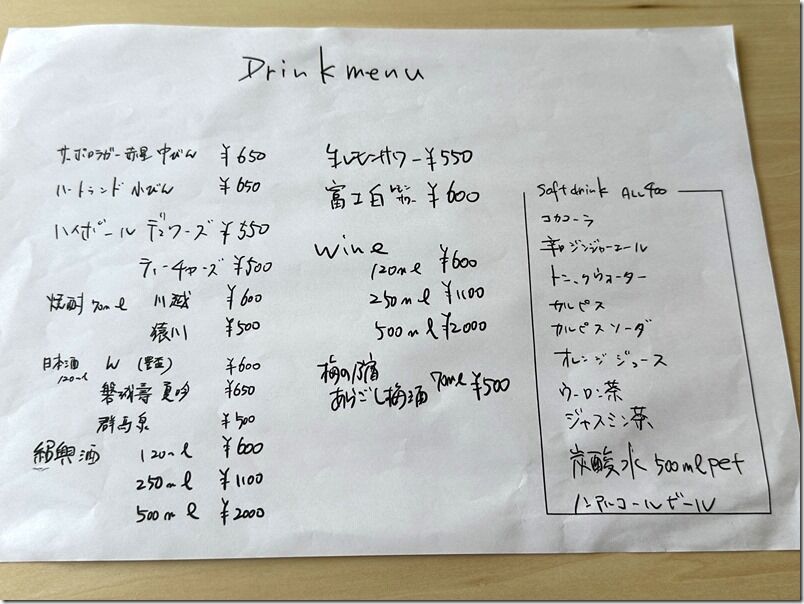 Drink menu
サッポロラガー赤星 中びん ¥650
ハートランド 小びん ¥650
ハイボール デュワーズ ¥550
ティーチャーズ ¥500
焼酎 70ml 川越 ¥600
猿川 ¥500
日本酒 120ml ん ¥600
磐城壽 夏吟 ¥650
群馬泉 ¥500
紹興酒 120ml ¥600
250ml ¥1100
500ml ¥2000
生レモンサワー ¥550
富士白 レモンサワー ¥600
wine
120ml ¥600
250ml ¥1100
500ml ¥2000
梅の宿
あらごし梅酒 70ml ¥500
Soft drink ALL400
コカコーラ
辛口ジンジャーエール
トニックウォーター
カルピス
カルピスソーダ
オレンジジュース
ウーロン茶
ジャスミン茶
炭酸水 500ml pet
ノンアルコールビール